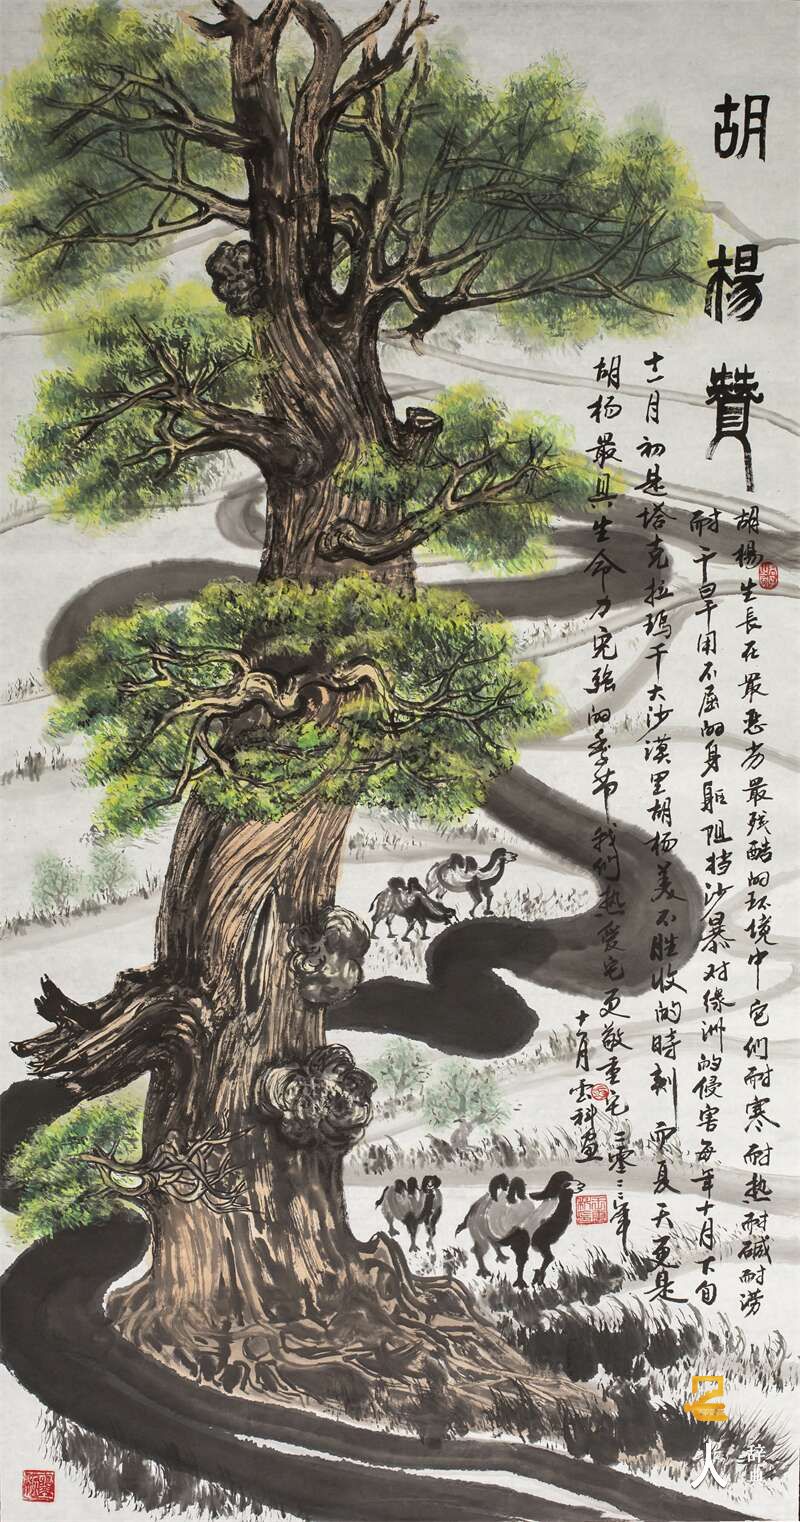 胡楊贊
胡楊生長在最惡劣最残酷的环境中它们耐寒耐热耐碱耐涝
耐干旱用不屈的身躯阻挡沙暴对绿洲的侵害每年十月下旬
十一月初是塔克拉玛干大沙漠里胡杨美不胜收的時刻而夏天更是
胡杨最具生命力完强的季节我们热爱它更敬重它二零二二年
十月雲科画
名人
辞典